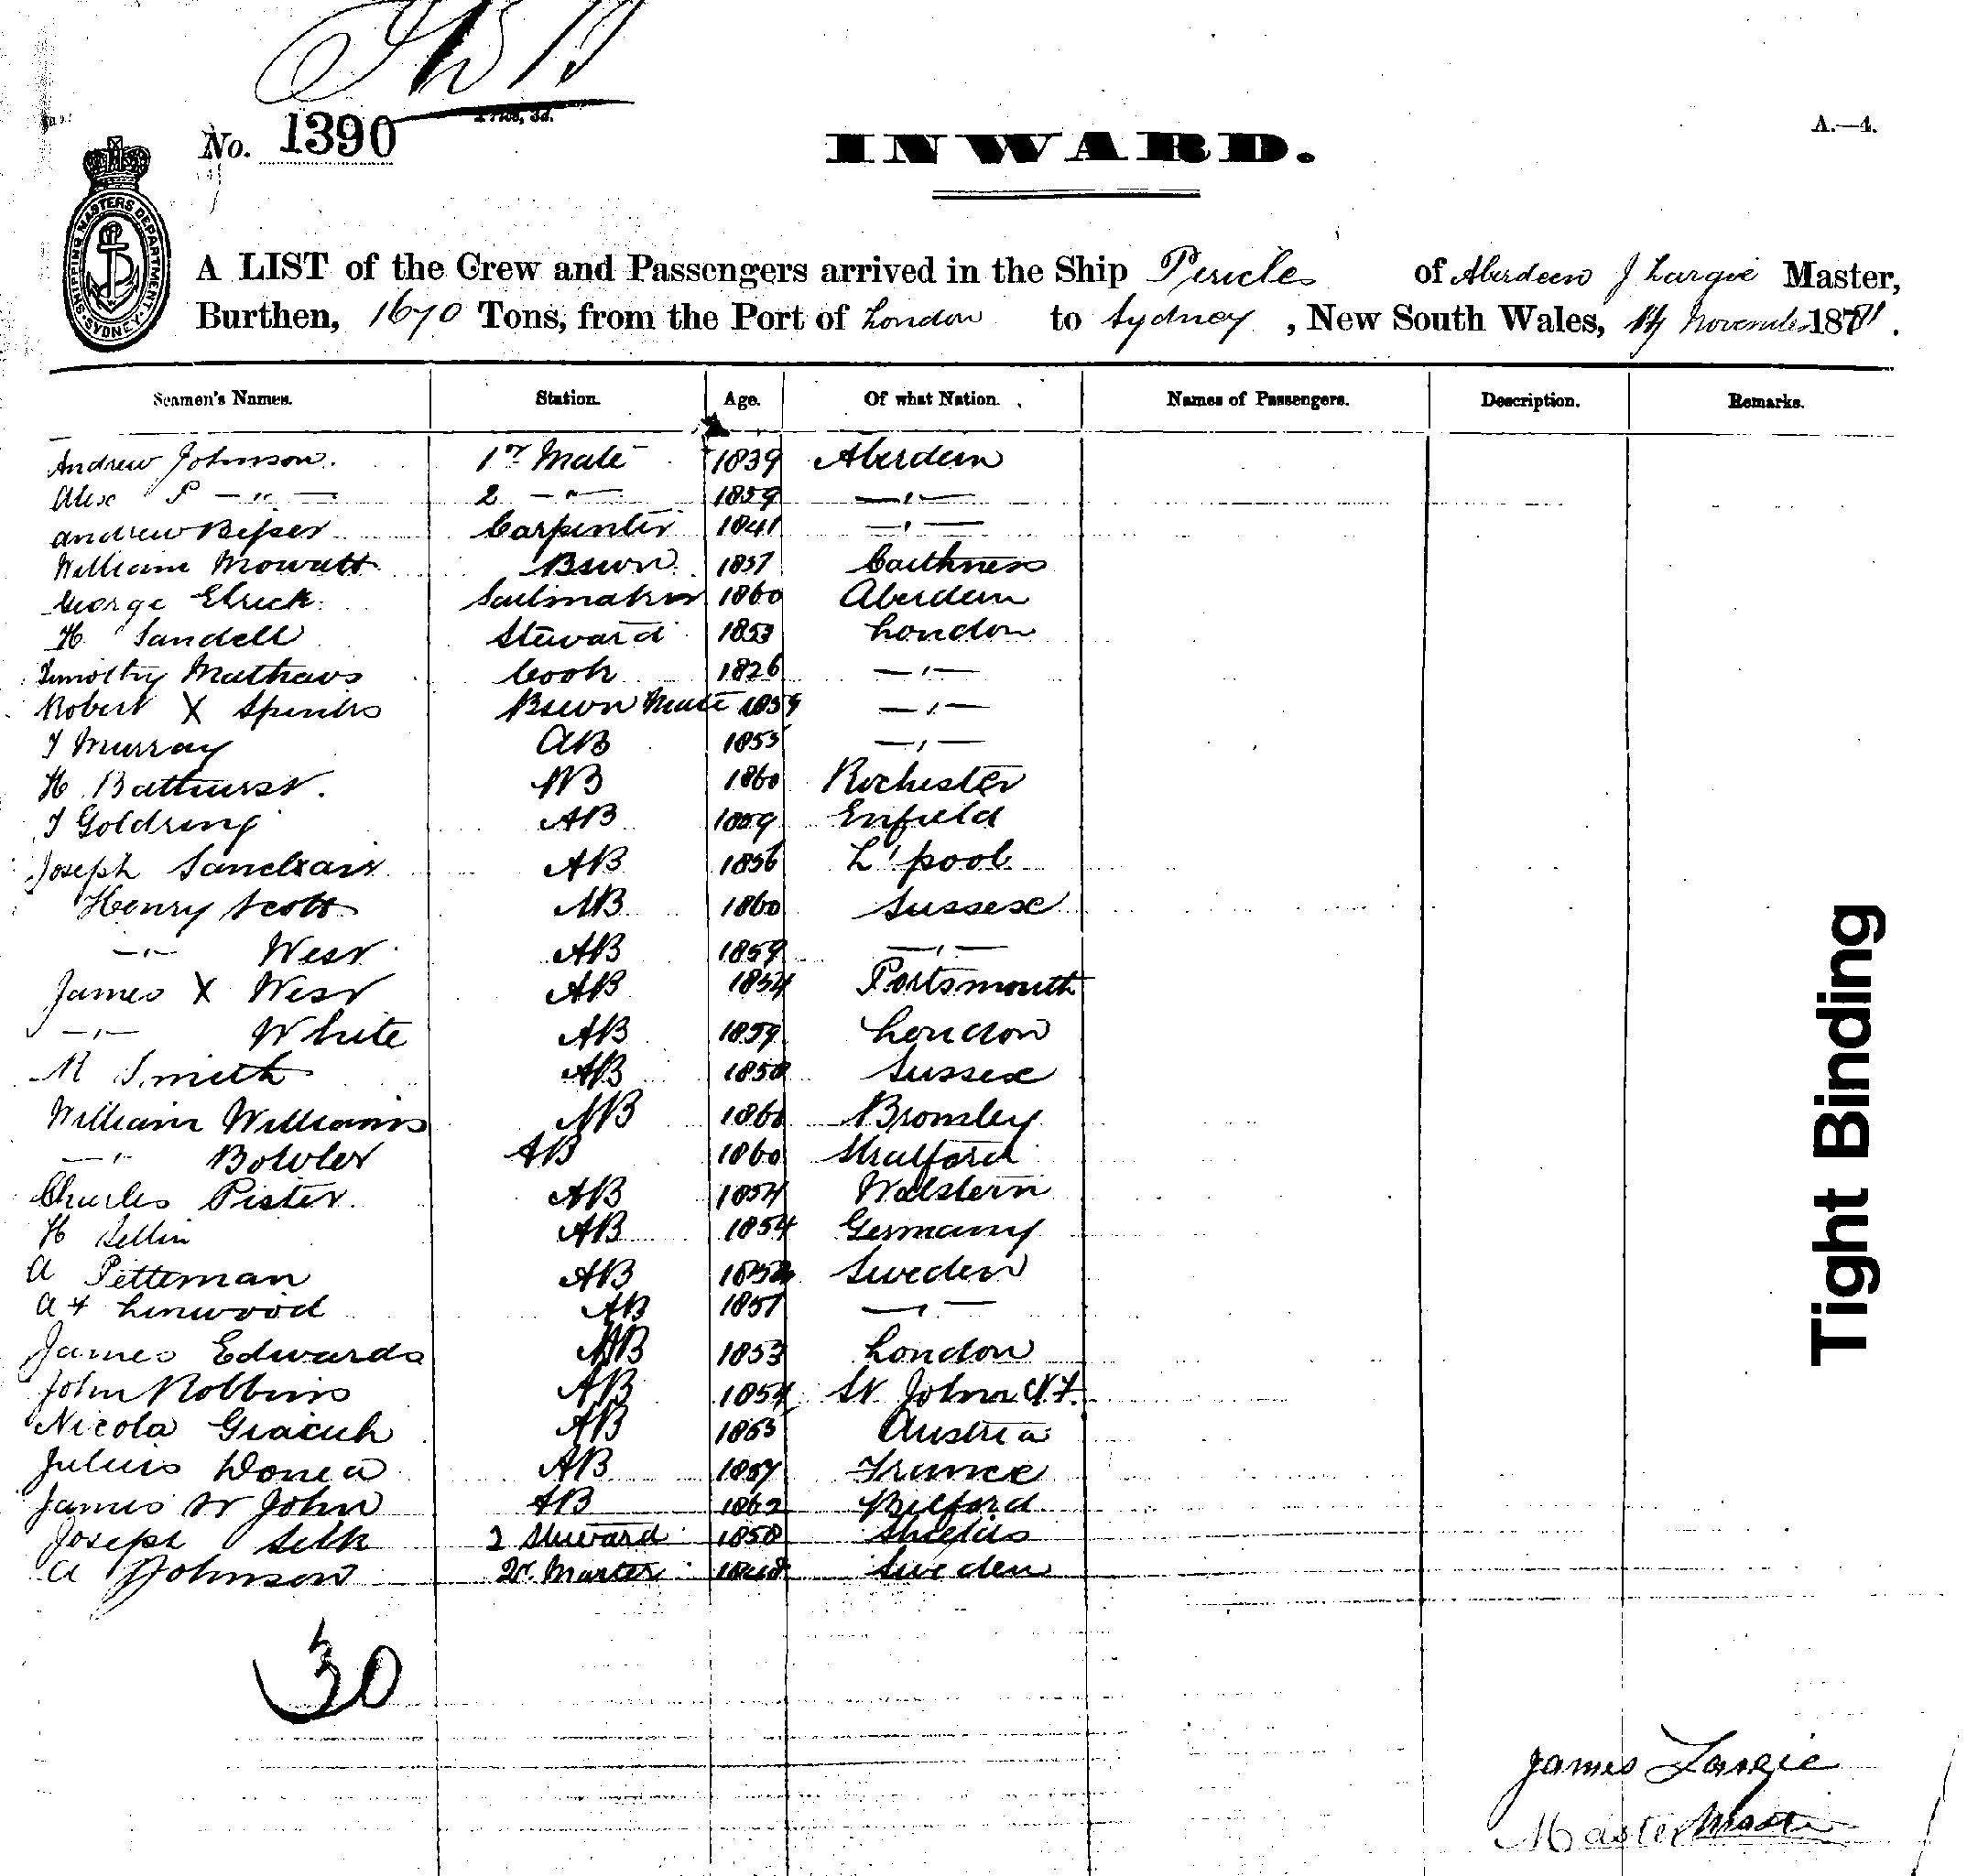 Price, 3d.
No. 1390
A.—4.
INWARD.
SHIPPING MASTERS DEPARTMENT SYDNEY
A LIST of the Crew and Passengers arrived in the Ship Pericles of Aberdeen J Largie Master,
Burthen, 1670 Tons, from the Port of London to Sydney, New South Wales, 14 November 187
Seamen's Names. Station. Age. Of what Nation. Names of Passengers. Description. Remarks.
Andrew Johnson. 1st Mate 1839 Aberdeen
Alex P —"— 2 —"— 1859 —"—
Andrew Carpenter 1841 —"—
William Mowatt Bswn 1857 Caithness
George Elrick Sailmaker 1860 Aberdeen
H Sandell Steward 1853 London
Timothy Mathews Cook 1826 —"—
Robert X Spinks Bswn Mate 1859 —"—
J Murray AB 1855 —"—
H. Bathurst. AB 1860 Rochester
J Goldring AB 1859 Enfield
Joseph AB 1856 L'pool
Henry Scott AB 1860 Sussex
—"— West AB 1859 —"—
James X West AB 1854 Portsmouth
—"— White AB 1859 London
R Smith AB 1858 Sussex
William Williams AB 1860 Bromley
—"— Bowler AB 1860 Stratford
Charles Pister AB 1854
H Sellin AB 1854 Germany
A Petterman AB Sweden
A + Linwood AB 1857 —"—
James Edwards AB 1853 London
John Robbins AB 1854 St Johns N.F.
Nicola AB Austria
Julius AB 1857 France
James St John AB 1862
Joseph Silk 2 Steward 1858 Shields
A Johnson Qr. Master 1848 Sweden
30
James Largie
Master
Tight Binding